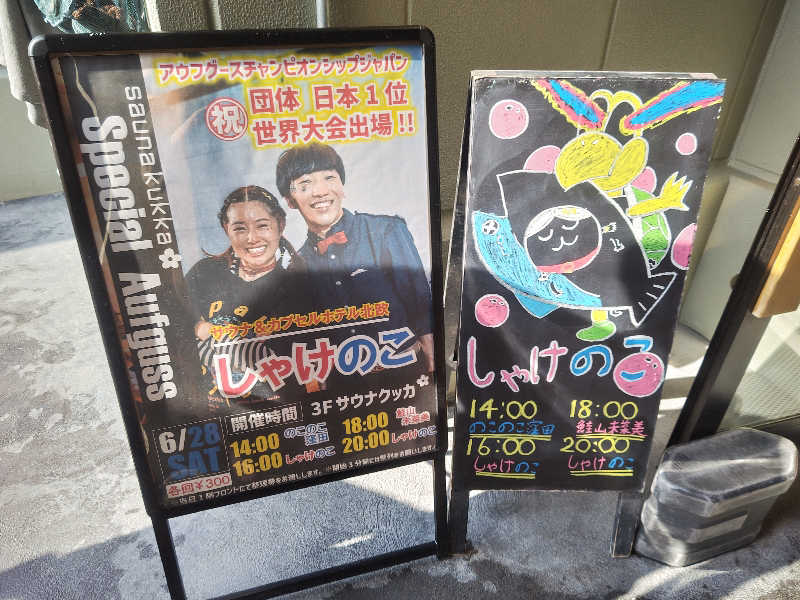 アウフグースチャンピオンシップジャパン
祝 団体 日本1位
世界大会出場!!
sauna kukka
Special Aufguss
サウナ&カプセルホテル北欧
しゃけのこ
6/28
SAT
各回¥300
開催時間 3Fサウナクッカ
14:00 のこのこ窪田
16:00 しゃけのこ
18:00 鮭山未菜美
20:00 しゃけのこ
しゃけのこ
14:00
のこのこ窪田
16:00
しゃけのこ
18:00
鮭山未菜美
20:00
しゃけのこ